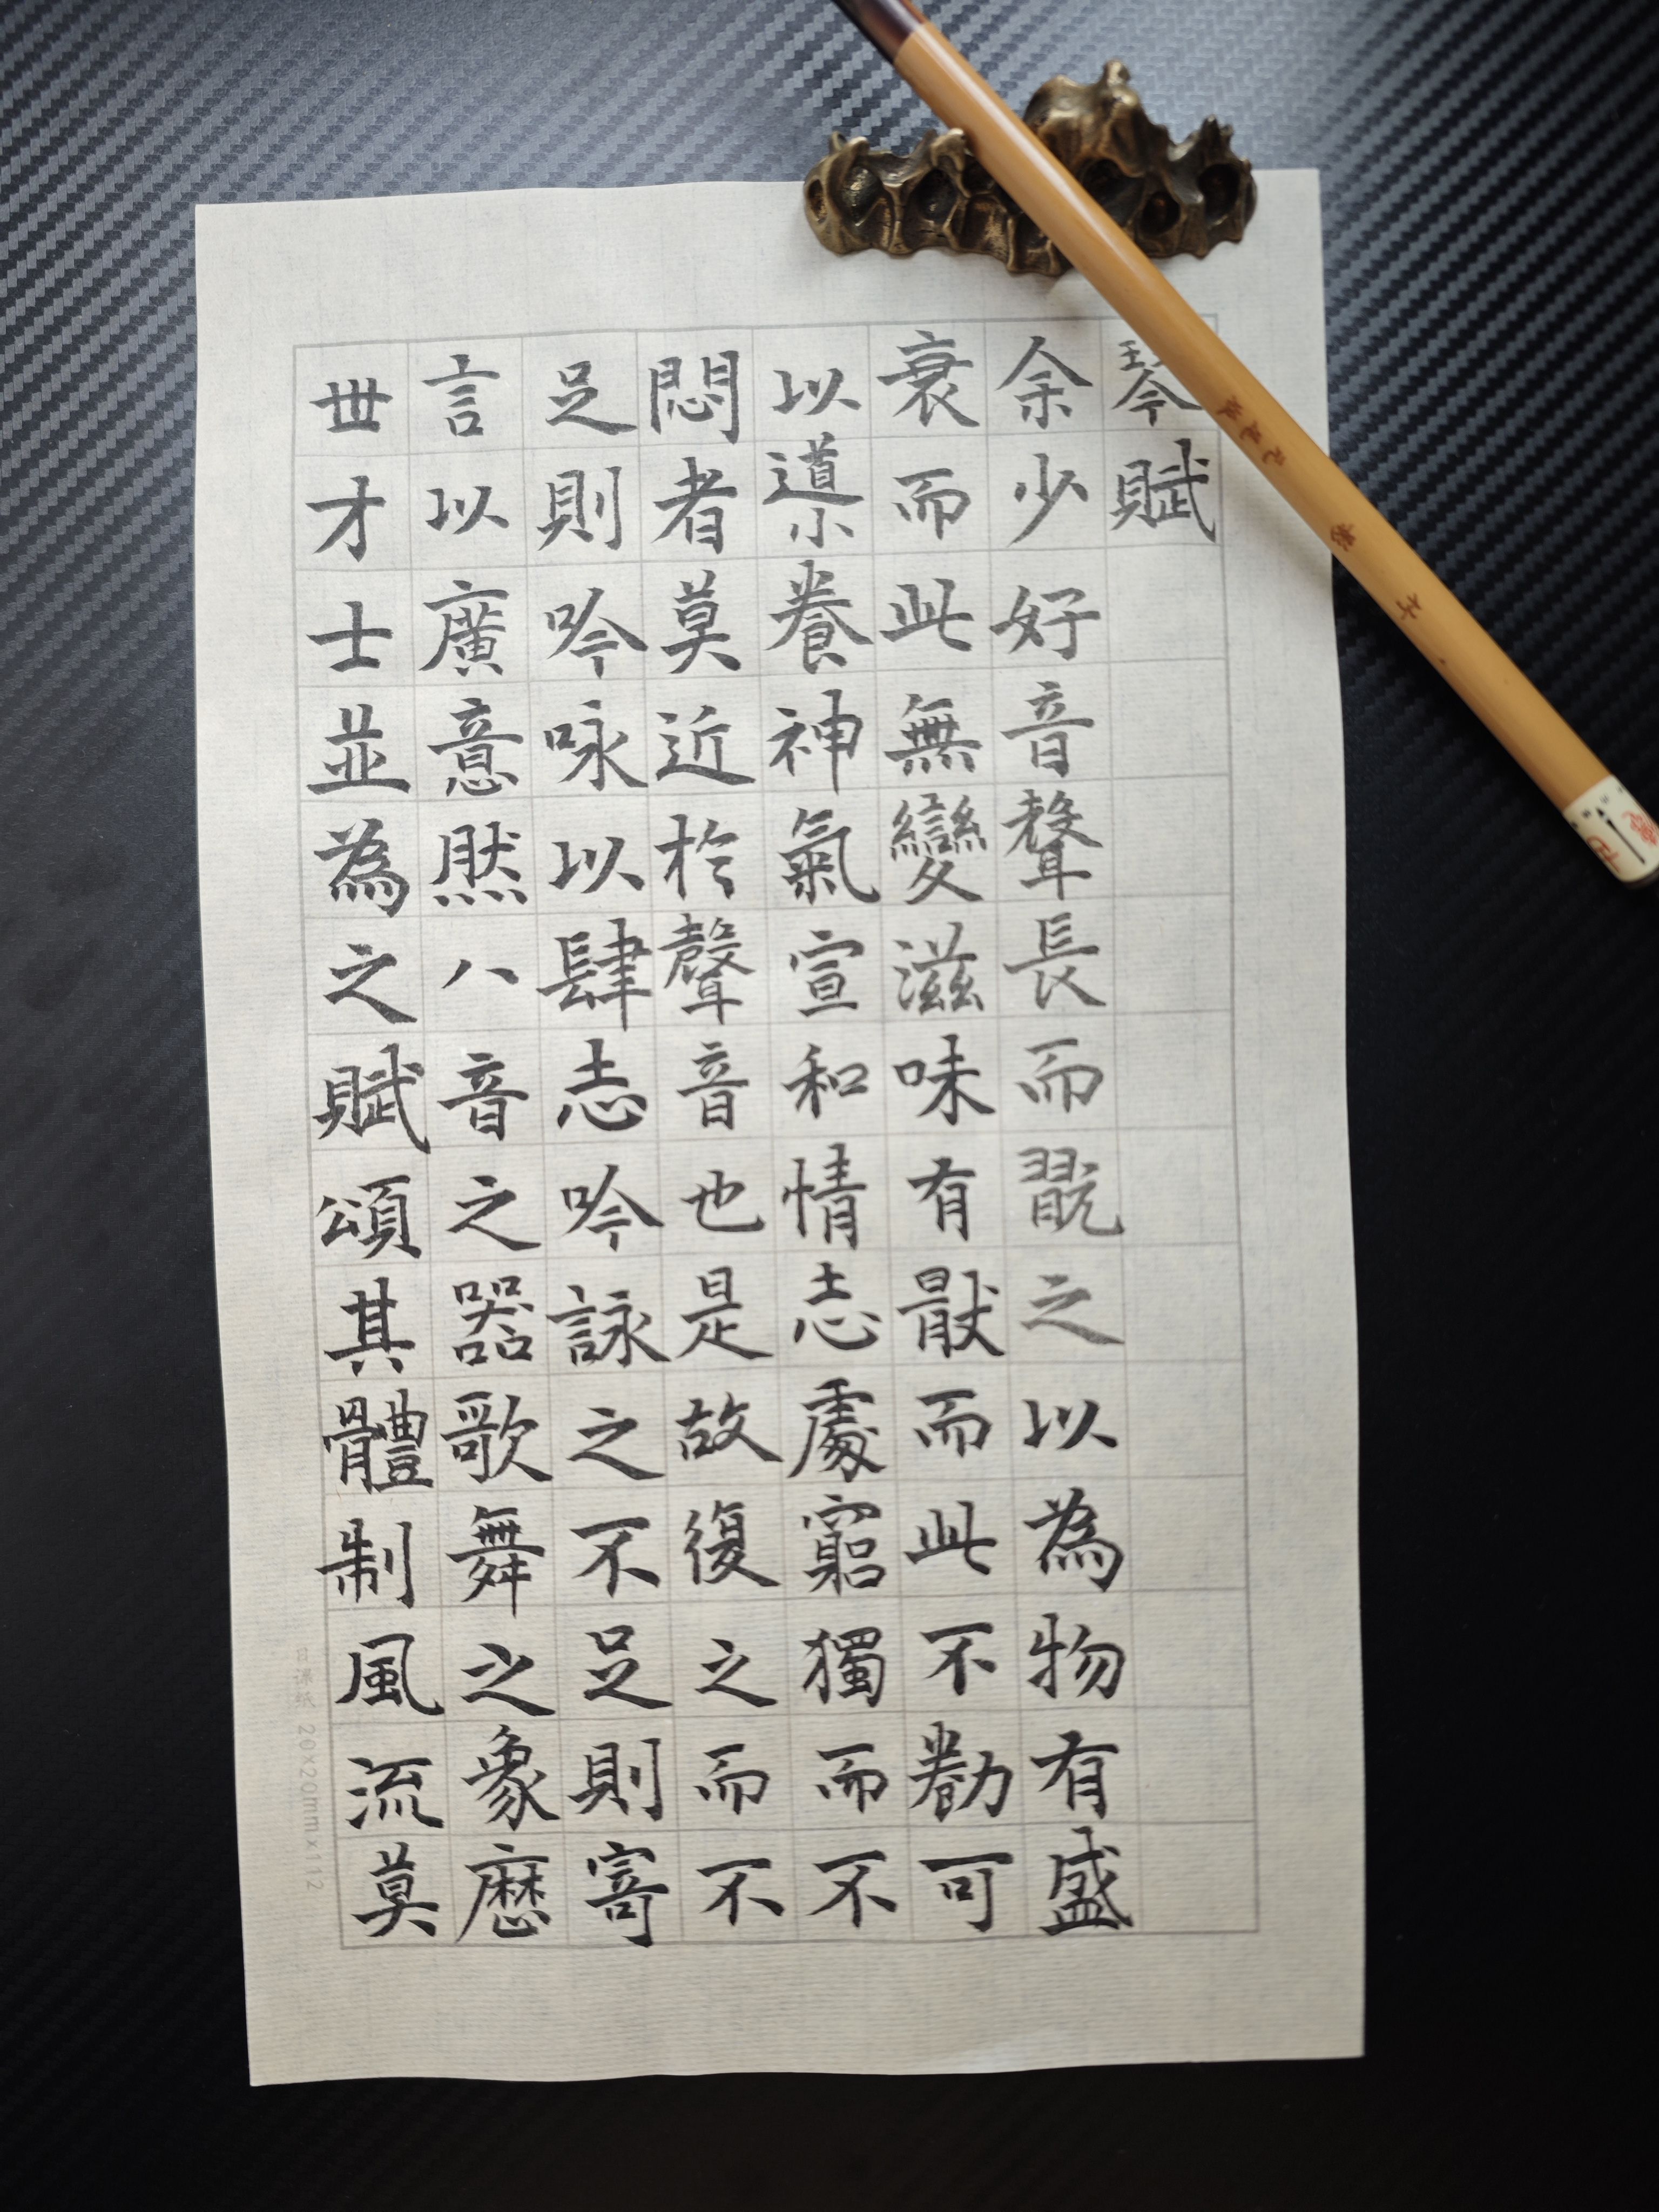 琴賦
余少好音聲長而翫之以為物有盛
衰而此無變滋味有猒而此不勌可
以導養神氣宣和情志處窮獨而不
悶者莫近於聲音也是故復之而不
足則吟咏以肆志吟詠之不足則寄
言以廣意然八音之器歌舞之象歷
世才士並為之賦頌其體制風流莫
日课纸 20x20mmx112